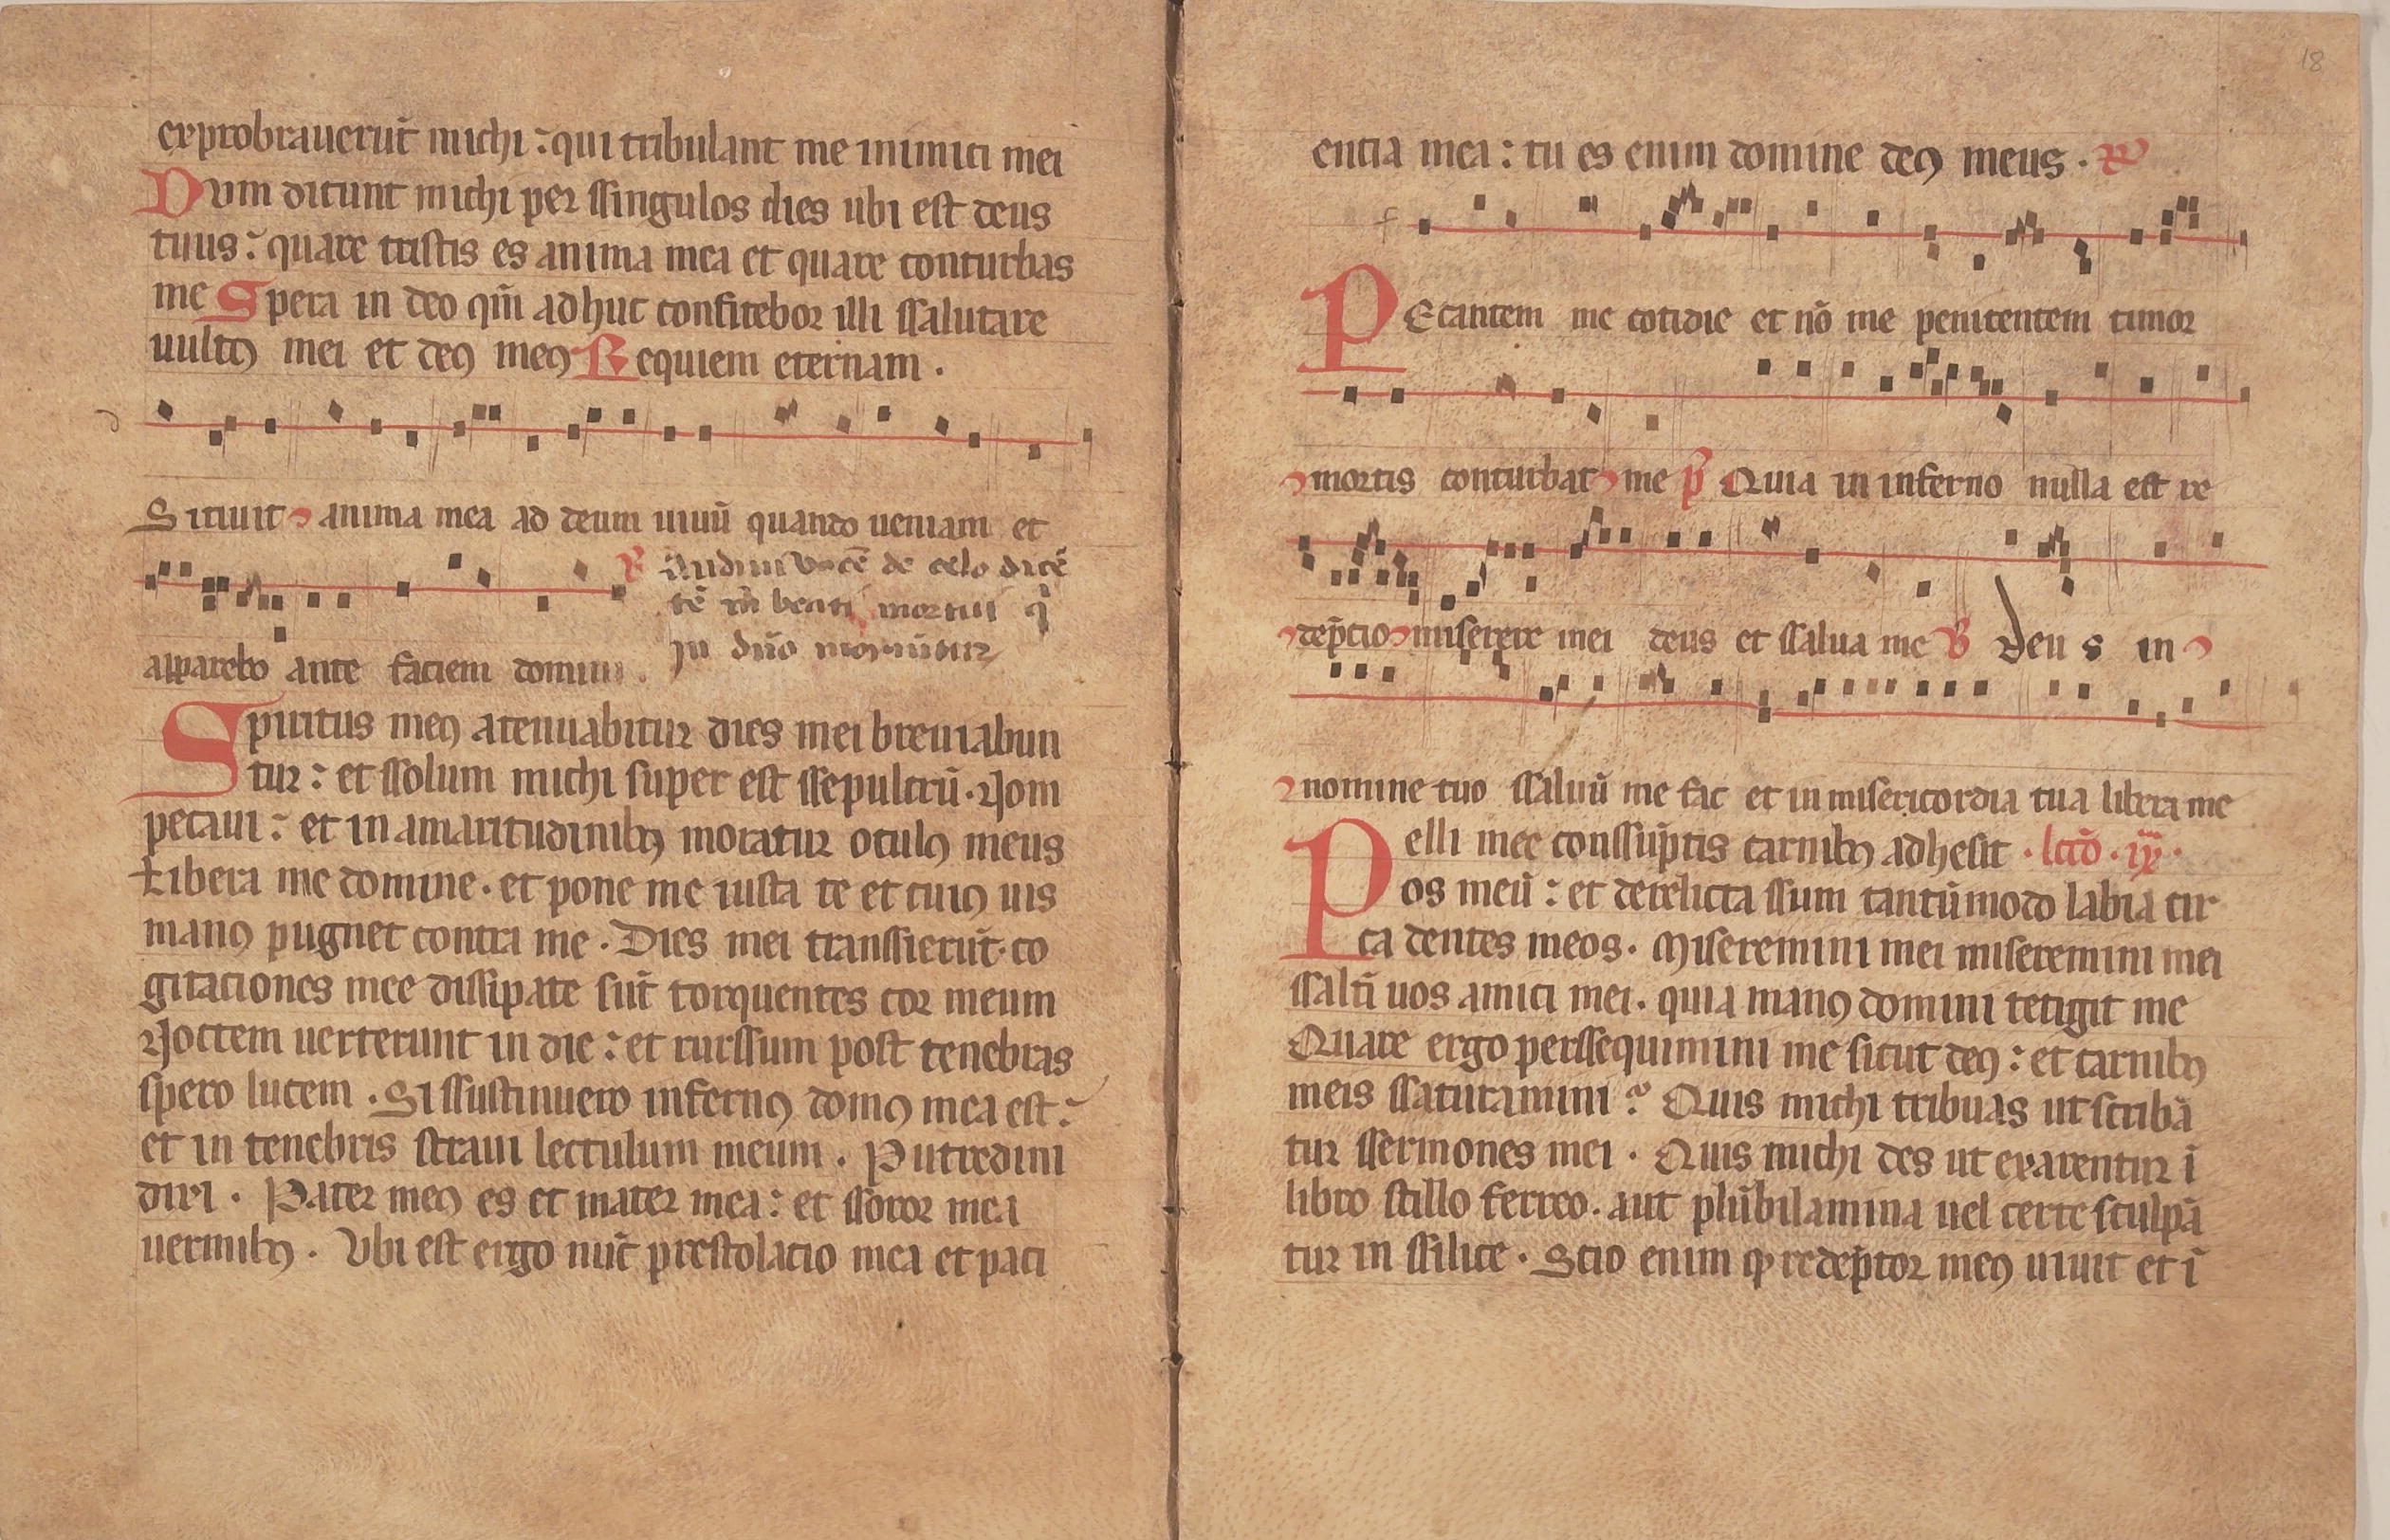 exprobrauerūt michi : qui tribulant me inimici mei
Dum dicunt michi per ssingulos dies ubi est deus
tuus : quare tristis es anima mea et quare conturbas
me Spera in deo qm̄ adhuc confitebor illi ssalutare
uultꝯ mei et deꝯ meꝯ Requiem eternam .
Sitiuit anima mea ad deum uiuū quando ueniam et
℟ Audiui vocē de celo dicē
tē m̄ beati mortui q̇
apparebo ante faciem domini .
In dn̄o moriūtur
Spiritus meꝯ atenuabitur dies mei breuiabun
tur : et ssolum michi super est ssepulcrū . Non
pecaui : et in amaritudinibꝯ moratur oculꝯ meus
Libera me domine . et pone me iusta te et cuiꝯ uis
manꝯ pugnet contra me . Dies mei transsierūt . co
gitaciones mee dissipate sūt torquentes cor meum
Noctem uerterunt in die : et rurssum post tenebras
spero lucem . Si ssustinuero infernꝯ domꝯ mea est :
et in tenebris straui lectulum meum . Putredini
dixi . Pater meꝯ es et mater mea : et ssoror mea
uermibꝯ . Vbi est ergo nūc prestolacio mea et paci
18
encia mea : tu es enim domine deꝯ meus . ℟
f
PEcantem me cotidie et nō me penitentem timor
mortis conturbat me p̄ Quia in inferno nulla est re
dep̄cio miserere mei deus et ssalua me ℣ Deus in
nomine tuo ssaluū me fac et in misericordia tua libera me
Pelli mee conssūptis carnibꝯ adhesit . lccō . ix .
os meū : et derelicta ssum tantūmodo labia cir
ca dentes meos . Miseremini mei miseremini mei
ssaltī uos amici mei . quia manꝯ domini tetigit me
Quare ergo perssequimini me sicut deꝯ : et carnibꝯ
meis ssaturamini ? Quis michi tribuas ut scribā
tur ssermones mei . Quis michi des ut exarentur ī
libro stillo ferreo . aut plūbi lamina uel certe sculpā
tur in ssilice . Scio enim ꝙ redēptor meꝯ uiuit et ī